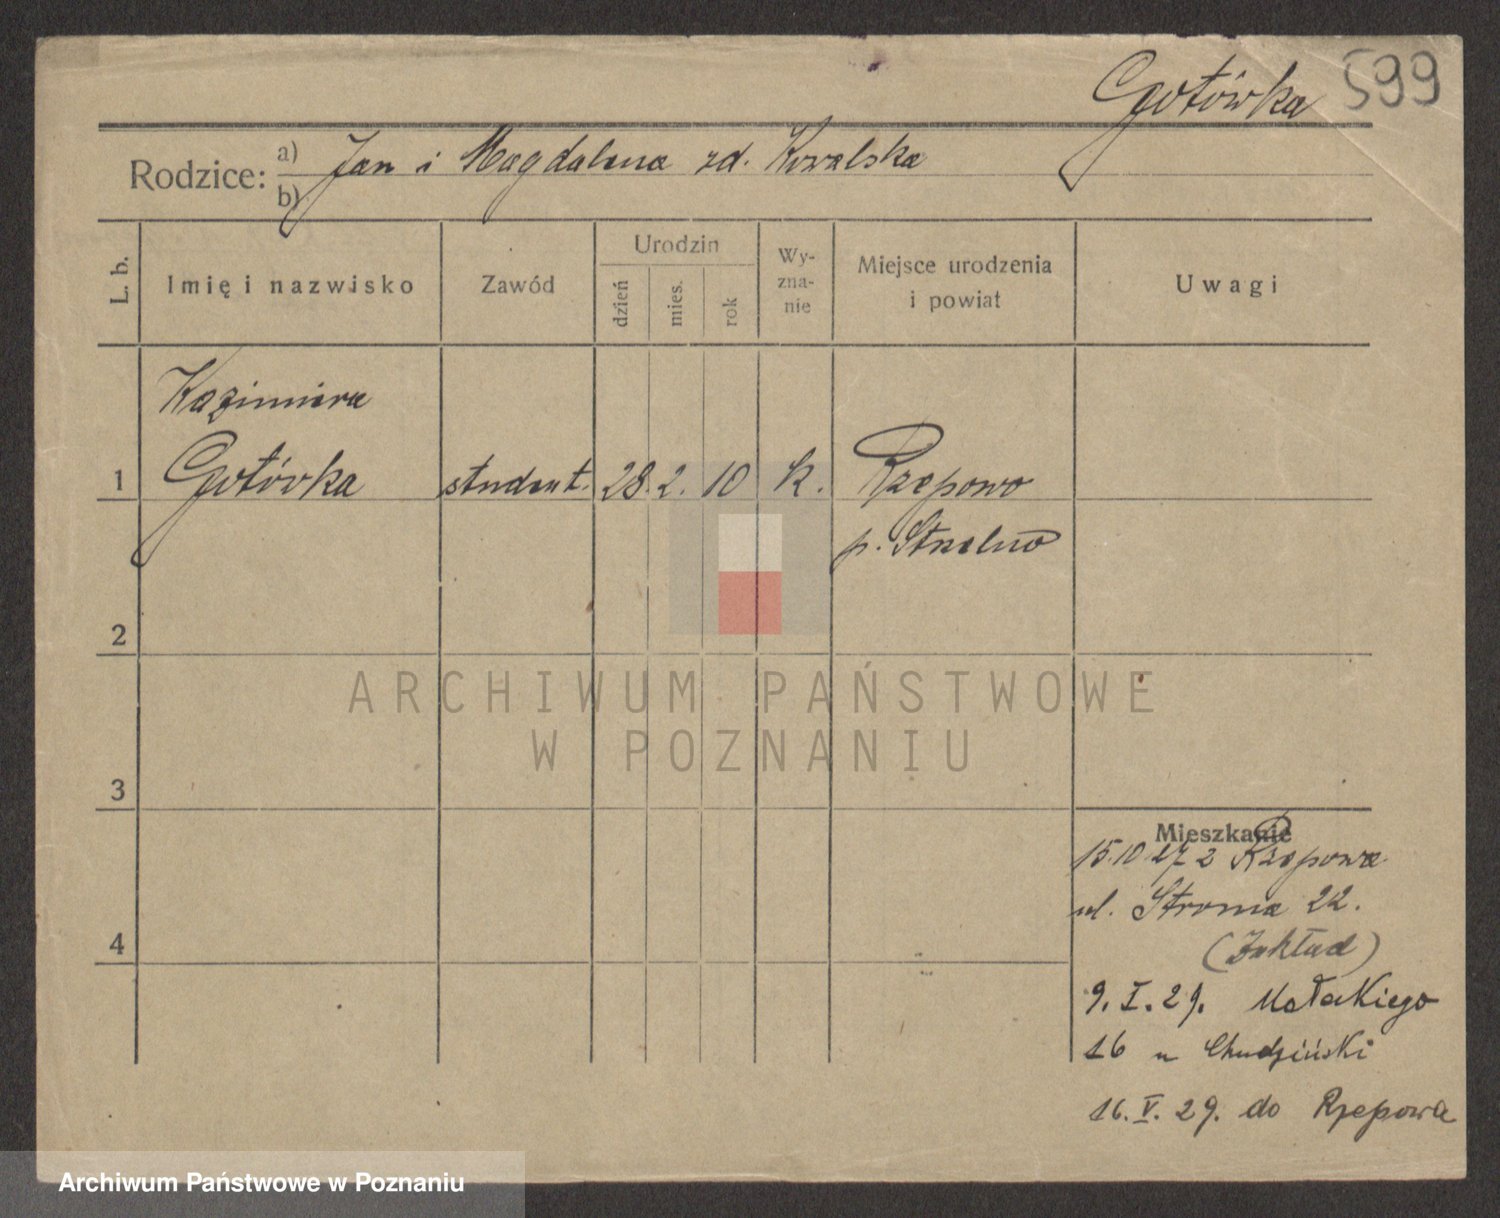 Gotówka 599
Rodzice: a) Jan i Magdalena zd. Kowalska
b)
L. b.
Imię i nazwisko
Zawód
Urodzin
dzień
mies.
rok
Wy-
zna-
nie
Miejsce urodzenia
i powiat
Uwagi
Kazimiera
1 Gotówka student. 28. 2. 10 k. Rzepowo
p. Strzelno
2
3
4
ARCHIWUM PAŃSTWOWE
W POZNANIU
Mieszkanie
15.10.27 z Rzepowa
ul. Stroma 22.
(Zakład)
9. I. 29. Małeckiego
16 u Chudziński
16. V. 29. do Rzepowa
Archiwum Państwowe w Poznaniu